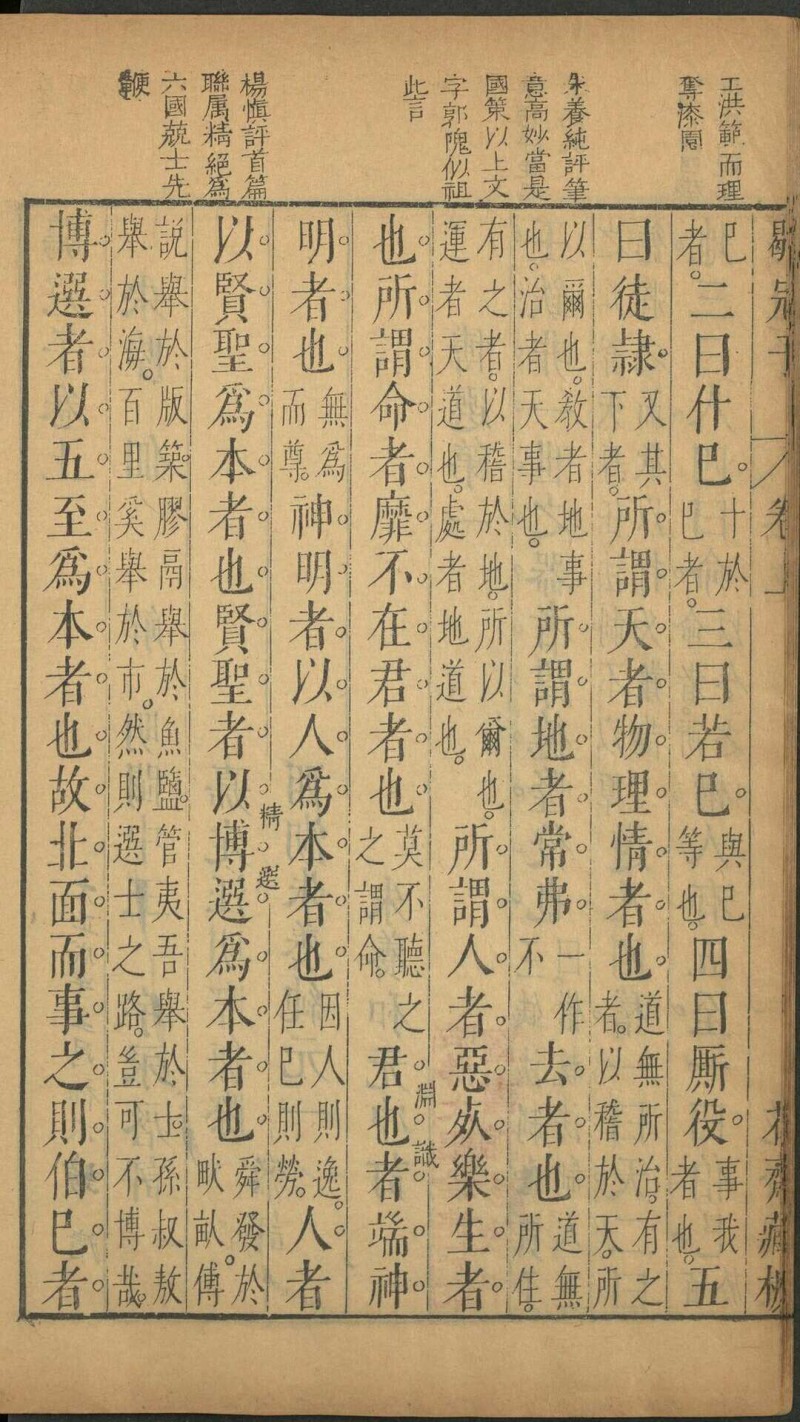 王洪範而理
奪漆園
朱養純評筆
意高妙當是
國策以上文
字郭隗似祖
此言
楊慎評首篇
聯属精絕為
六國蓺士先
鞭
鶡冠子 卷上 花齋藏板
巳者。二曰什巳。十於巳者。三曰若巳。與巳等也。四曰厮役。事我者也。五
曰徒隷。又其下者。所謂天者物理情者也。道無所治。有之者。以稽於天。所
以爾也。敎者地事也。治者天事也。所謂地者常弗一作不去者也。道無所住。
有之者。以稽於地。所以爾也。運者天道也。處者地道也。所謂人者惡死樂生者
也所謂命者靡不在君者也莫不聽之之謂命。君也者端神
淵識
明者也無爲而尊。神明者以人爲本者也因人則逸。任巳則勞。人者
以賢聖爲本者也賢聖者以博選爲本者也舜發於畎畝。傅
精選
說舉於版築。膠鬲舉於魚鹽。管夷吾舉於士。孫叔敖舉於海。百里奚舉於市。然則選士之路。豈可不博哉。
博選者以五至爲本者也故北面而事之則伯巳者